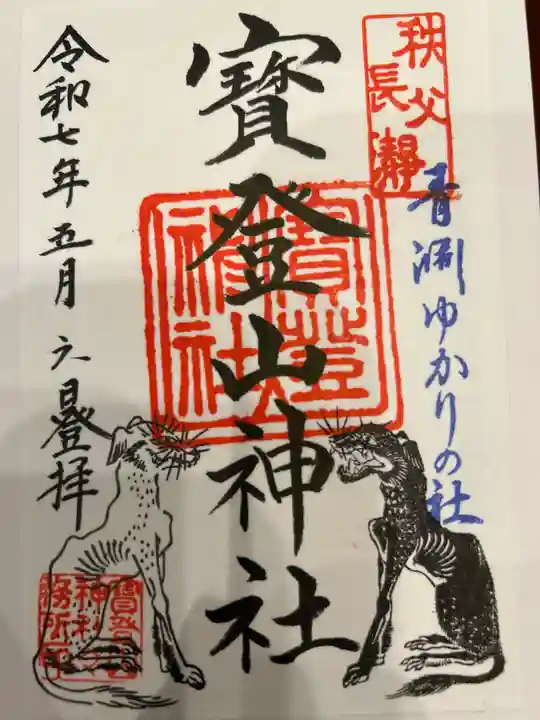 秩父
長瀞
青淵ゆかりの社
寳登山神社
寳登山
神社
令和七年五月六日登拝
寳登山
神社
務所印